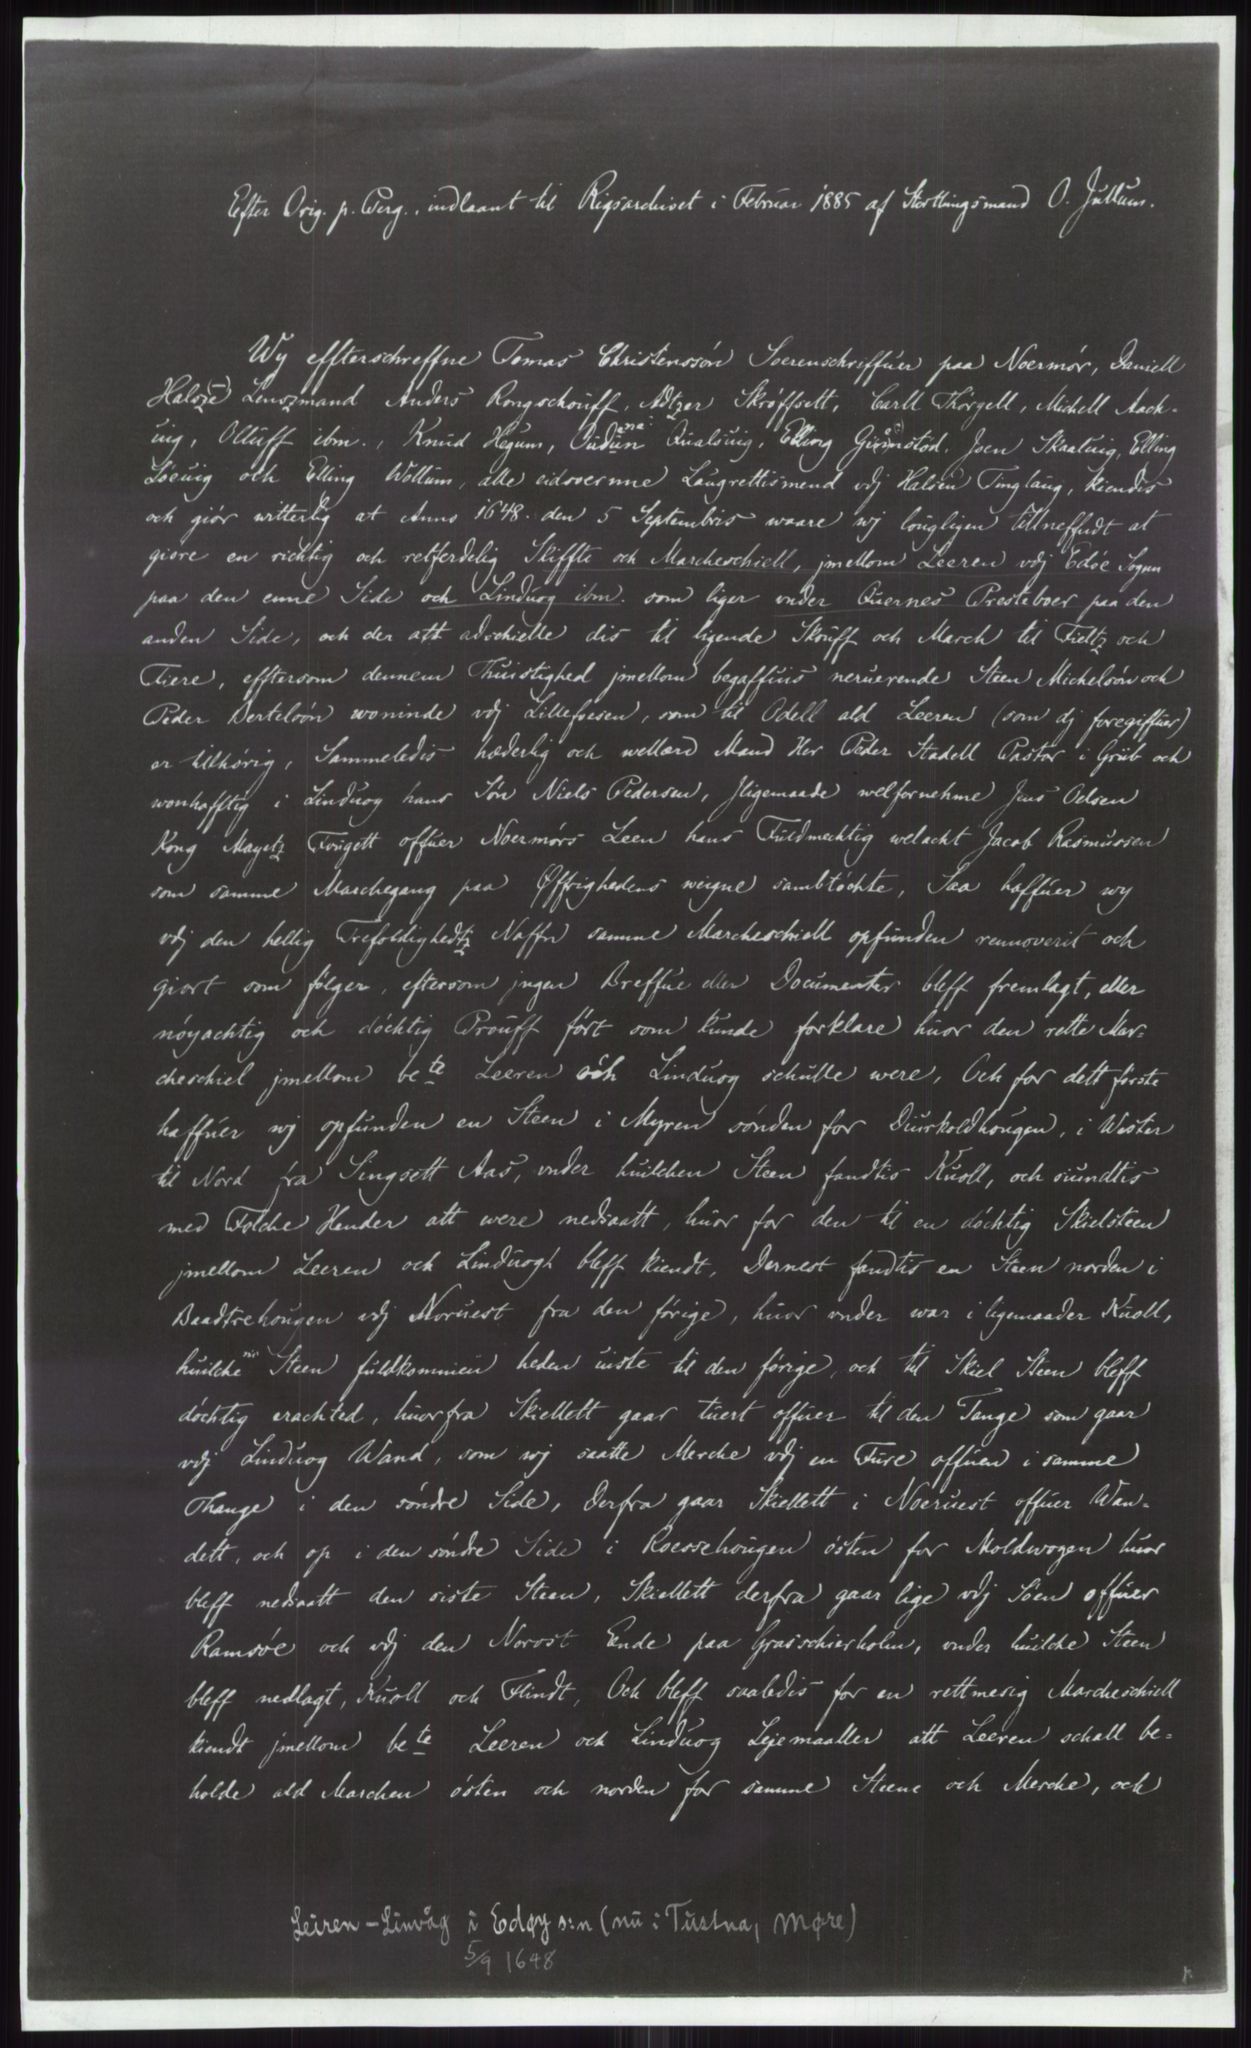 Efter Orig. p. Perg., indlaant til Rigsarchivet i Februar 1885 af Storthingsmand O. Jullum.
Wy effterschreffne Tomas Christenssøn Soerenschriffuer paa Noermør, Daniell
Halsze (-) Lenszmand Anders Rongschouff, Adtzer Skrøffsett, Carll Thorgell, Michell Aack-
uig, Olluff ibm., Knud Hegum, Oudun Qualsuig, Elling Giømstød, Joen Skaaluig, Elling
Löeuig och Elling Wollum, alle eidsoernne Laugrettismend vdj Halseu Tinglaug, kiendis
och giör witterlig at Anno 1648. den 5 Septembris waare wj lougligen tillneffndt at
giøre en richtig och retferdelig Skiffte och Marcheschiell, jmellom Leeren vdj Edöe Sogen
paa den enne Side och Linduog ibm. som liger vnder Quernes Presteboer paa den
anden Side, och der att adschielle dis til ligende Skouff och March til Fieltz och
Fiere, efftersom dennem Thuistighed jmellom begaffuis neruerende Steen Michelsön och
Peder Bertelsön woninde vdj Lillefoesen, som til Odell ald Leeren (som dj foregiffuer)
er tilhörig, Sammeledis hæderlig och wellærd Mand Her Peder Stadell Pastor i Grüb och
wonhafftig i Linduog hans Sön Niels Pedersen, Jligemaade welfornehme Jens Oelsen
Kong Maytz Fougett offuer Noermörs Leen hans Fuldmechtig welacht Jacob Rasmussen
som samme Marchegang paa Øffrighedens weigne sambtöchte, Saa haffuer wy
vdj den hellig Trefoldighedtz Naffn samme Marcheschiell opfunden rennoverit och
giort som fölger, eftersom jngen Breffue eller Documenter bleff fremlagt, eller
nöyachtig och döchtig Prouff fört som kunde forklare huor den rette Mar-
cheschiel jmellom bete Leeren och Linduog schulle were, Och for dett förste
haffuer wj opfunden en Steen i Myren sönden for Duurkoldhougen, i Wester
til Nord fra Singsett Aas, vnder huilchen Steen fandtis Kuoll, och siundtis
med Folche Hender att were nedsatt, huor for den til en döchtig Skielsteen
jmellom Leeren och Linduogh bleff kiendt, Dernest fandtis en Steen norden i
Baadtrehougen vdj Noruest fra den förige, huor vnder war i ligemaader Kuoll,
huilche sic Steen fuldkommen heden uiste til den förige, och til Skiel Steen bleff
döchtig erachted, huorfra Skiellett gaar tuert offuer til den Tange som gaar
vdj Linduog Wand, som wj saatte Merche vdj en Fure offuen i samme
Thange i den söndre Side, Derfra gaar Skiellett i Noeruest offuer Wan-
dett, och op i den söndre Side i Roessehougen östen for Moldwogen huor
bleff nedsatt den siste Steen, Skiellett derfra gaar lige vdj Söen offuer
Ramsöe och vdj den Norost Ende paa Grasschierholm, vnder huilche Steen
bleff nedlagt, Kuoll och Flindt, Och bleff saaledis for en rettmesig Marcheschiell
kiendt jmellom bete Leeren och Linduog Lejemaaller att Leeren schall be-
holde ald Marchen östen och norden for samme Steene och Merche, och
Leiren – Linvåg i Edøy s:n (nu i Tustna, Møre)
5/9 1648